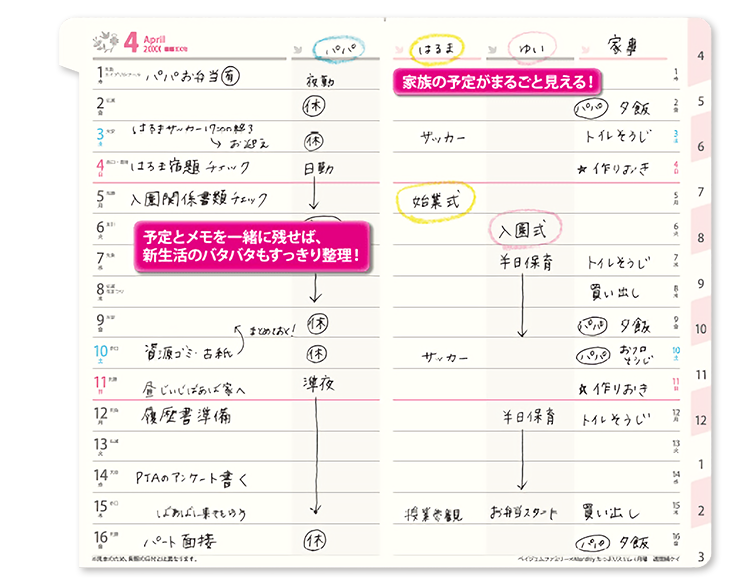 4 April
20XX
パパ
はるま
ゆい
家事
家族の予定がまるごと見える!
1 パパお弁当有 夜勤
2 休 パパ 夕飯
3 はるまサッカー17:00終了
→お迎え 休 サッカー トイレそうじ
4 はるま宿題チェック 日勤 ★作りおき
5 入園関係書類チェック 始業式
6 入園式
予定とメモを一緒に残せば、
新生活のバタバタもすっきり整理!
7 半日保育 トイレそうじ
8 買い出し
9 休 パパ 夕飯
まとめておく!
10 資源ゴミ・古紙 休 サッカー パパ おフロそうじ
11 昼じいじばあば家へ 準夜 ★作りおき
12 履歴書準備 半日保育 トイレそうじ
13
14 PTAのアンケート書く
15 ばあばに来てもらう 授業参観 お弁当スタート 買い出し
16 パート面接 休 パパ 夕飯
4
5
6
7
8
9
10
11
12
1
2
3